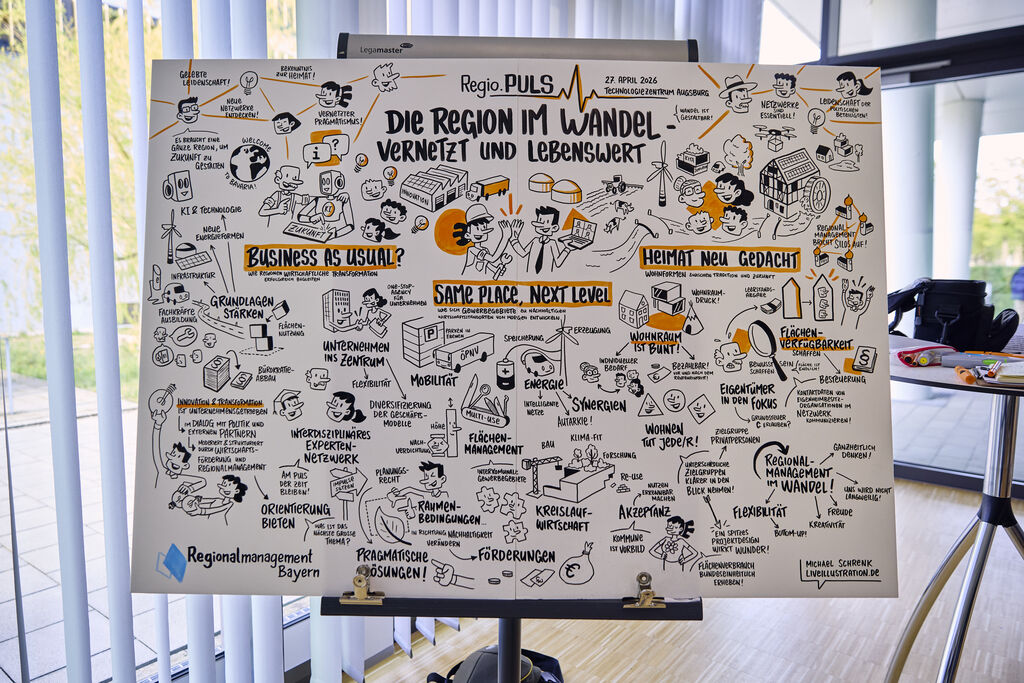 Legamaster
Regio.PULS
27. APRIL 2026
TECHNOLOGIEZENTRUM AUGSBURG
DIE REGION IM WANDEL -
VERNETZT UND LEBENSWERT
GELEBTE
LEIDENSCHAFT!
BEKENNTNIS
ZUR HEIMAT!
NEUE
NETZWERKE
ENTDECKEN!
VERNETZTER
PRAGMATISMUS!
ES BRAUCHT EINE
GANZE REGION, UM
ZUKUNFT ZU
GESTALTEN
WELCOME
TO BAVARIA!
WANDEL IST
GESTALTBAR!
NETZWERKE
SIND
ESSENTIELL!
LEIDENSCHAFT DER
POLITISCHEN
BETEILIGTEN!
KI & TECHNOLOGIE
NEUE
ENERGIEFORMEN
INFRASTRUKTUR
ZUKUNFT
INNOVATION
REGIONAL
MANAGEMENT
BRICHT SILOS AUF!
BUSINESS AS USUAL?
WIE REGIONEN WIRTSCHAFTLICHE TRANSFORMATION
ERFOLGREICH BEGLEITEN
SAME PLACE, NEXT LEVEL
WIE SICH GEWERBEGEBIETE ZU NACHHALTIGEN
WIRTSCHAFTSSTANDORTEN VON MORGEN ENTWICKELN
HEIMAT NEU GEDACHT
WOHNFORMEN ZWISCHEN TRADITION UND ZUKUNFT
GRUNDLAGEN
STÄRKEN
FACHKRÄFTE
AUSBILDUNG
FLÄCHEN-
NUTZUNG
BÜROKRATIE-
ABBAU
ONE-STOP-
AGENCY
FÜR
UNTERNEHMEN
UNTERNEHMEN
INS ZENTRUM
FLEXIBILITÄT
DIVERSIFIZIERUNG
DER GESCHÄFTS-
MODELLE
INNOVATION & TRANSFORMATION
IST UNTERNEHMENSGETRIEBEN
IM DIALOG MIT POLITIK UND
EXTERNEN PARTNERN
MODERIERT & STRUKTURIERT
DURCH WIRTSCHAFTS-
FÖRDERUNG UND
REGIONALMANAGEMENT
INTERDISZIPLINÄRES
EXPERTEN-
NETZWERK
AM PULS
DER ZEIT
BLEIBEN!
ORIENTIERUNG
BIETEN
IMPULSE
SETZEN
WAS IST DAS
NÄCHSTE GROSSE
THEMA?
P
PARKEN IN
ÖPNV
MOBILITÄT
SPEICHERUNG
ERZEUGUNG
ENERGIE
INTELLIGENTE
NETZE
AUTARKIE!
SYNERGIEN
MULTI-USE
HÖHE
NACH-
VERDICHTUNG
FLÄCHEN-
MANAGEMENT
PLANUNGS-
RECHT
RAHMEN-
BEDINGUNGEN...
IN RICHTUNG NACHHALTIGKEIT
VERÄNDERN
PRAGMATISCHE
LÖSUNGEN!
FÖRDERUNGEN
€
INTERKOMMUNALE
GEWERBEGEBIETE
BAU
KLIMA-FIT
FORSCHUNG
RE-USE
KREISLAUF-
WIRTSCHAFT
WOHNRAUM-
DRUCK!
WOHNRAUM
IST BUNT!
INDIVIDUELLER
BEDARF
BEZAHLBAR?
WOHNEN
TUT JEDE/R!
LEERSTANDS-
ABGABE
FLÄCHEN-
VERFÜGBARKEIT
SCHAFFEN
BEWUSST
SEIN
SCHAFFEN
FLÄCHE IST
ENDLICH!
§
BESTEUERUNG
EIGENTÜMER
IN DEN FOKUS
GRUNDSTEUER
C ERLAUBEN?
KONTAKTDATEN VON
EIGENHEIMBESITZ-
ORGANISATIONEN IM
NETZWERK
KOMMUNIZIEREN!
ZIELGRUPPE
PRIVATPERSONEN
UNTERSCHIEDLICHE
ZIELGRUPPEN
KLARER IN DEN
BLICK NEHMEN!
REGIONAL-
MANAGEMENT
IM WANDEL!
GANZHEITLICH
DENKEN!
UNS WIRD NICHT
LANGWEILIG!
FREUDE
KREATIVITÄT
BOTTOM-UP!
FLEXIBILITÄT
NUTZEN
ERKENNBAR
MACHEN
AKZEPTANZ
KOMMUNE
IST VORBILD
EIN SPITZES
PROJEKTDESIGN
WIRKT WUNDER!
FLÄCHENVERBRAUCH
BUNDESEINHEITLICH
ERHEBEN!
Regionalmanagement
Bayern
MICHAEL SCHRENK
LIVEILLUSTRATION.DE